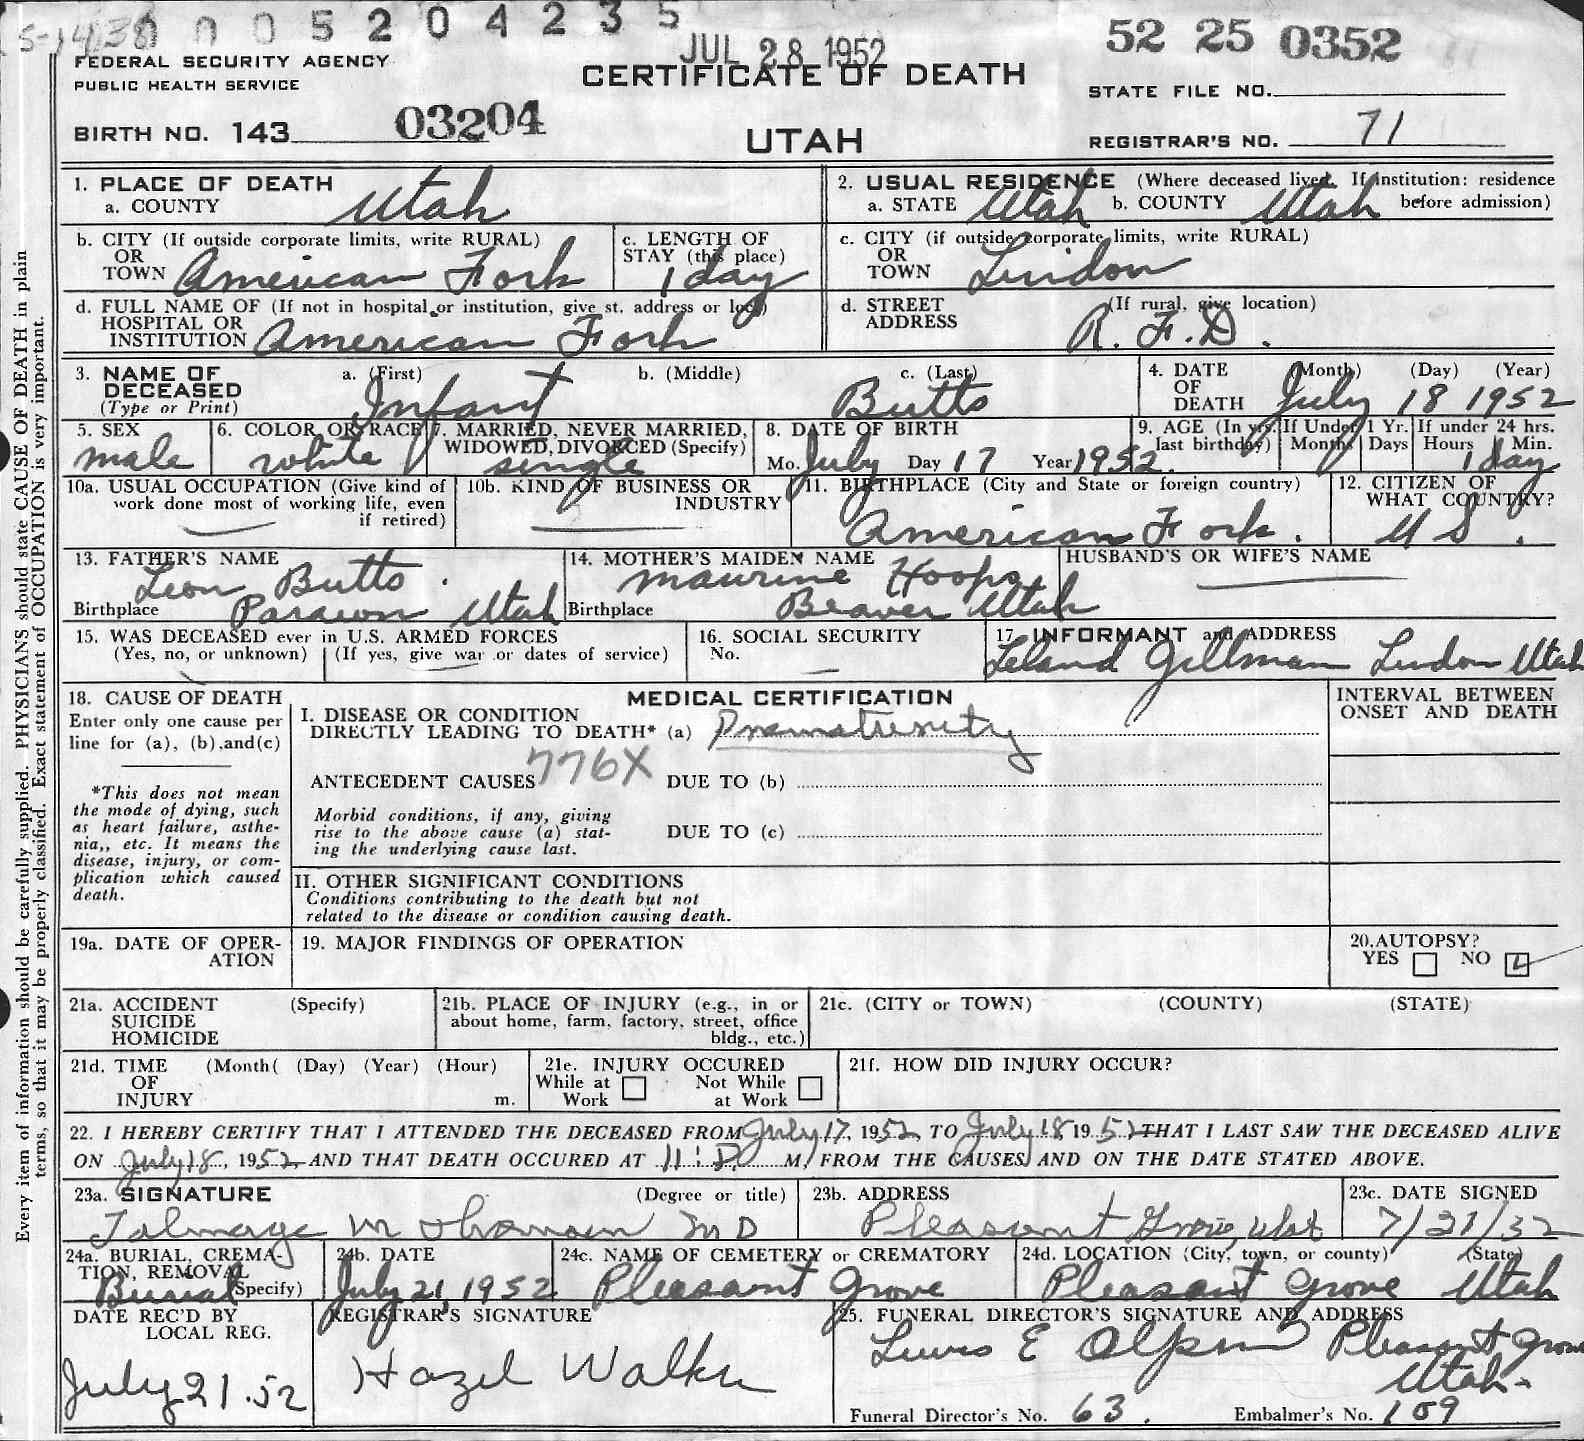 0005204235
JUL 28 1952
52 25 0352
FEDERAL SECURITY AGENCY
PUBLIC HEALTH SERVICE
CERTIFICATE OF DEATH
STATE FILE NO.
BIRTH NO. 143 03204
UTAH
REGISTRAR'S NO. 71
Every item of information should be carefully supplied. PHYSICIANS should state CAUSE OF DEATH in plain
terms, so that it may be properly classified. Exact statement of OCCUPATION is very important.
1. PLACE OF DEATH
a. COUNTY Utah
2. USUAL RESIDENCE (Where deceased lived. If institution: residence
a. STATE Utah b. COUNTY Utah before admission)
b. CITY (If outside corporate limits, write RURAL)
OR
TOWN American Fork
c. LENGTH OF
STAY (this place)
1 day
c. CITY (if outside corporate limits, write RURAL)
OR
TOWN Lindon
d. FULL NAME OF (If not in hospital or institution, give st. address or loc.)
HOSPITAL OR
INSTITUTION American Fork
d. STREET (If rural, give location)
ADDRESS R. F. D.
3. NAME OF a. (First) b. (Middle) c. (Last)
DECEASED
(Type or Print) Infant Butts
4. DATE (Month) (Day) (Year)
OF
DEATH July 18 1952
5. SEX
male
6. COLOR OR RACE
white
7. MARRIED, NEVER MARRIED,
WIDOWED, DIVORCED (Specify)
single
8. DATE OF BIRTH
Mo. July Day 17 Year 1952.
9. AGE (In yrs. last birthday)
If Under 1 Yr. Months Days
If under 24 hrs. Hours Min.
1 day
10a. USUAL OCCUPATION (Give kind of
work done most of working life, even
if retired)
10b. KIND OF BUSINESS OR
INDUSTRY
11. BIRTHPLACE (City and State or foreign country)
American Fork.
12. CITIZEN OF
WHAT COUNTRY?
U S.
13. FATHER'S NAME
Leon Butts.
Birthplace Parawon Utah
14. MOTHER'S MAIDEN NAME
Maurine Hoops
Birthplace Beaver Utah
HUSBAND'S OR WIFE'S NAME
15. WAS DECEASED ever in U.S. ARMED FORCES
(Yes, no, or unknown) (If yes, give war or dates of service)
16. SOCIAL SECURITY
No.
17. INFORMANT and ADDRESS
Leland Gillman Lindon Utah
18. CAUSE OF DEATH
Enter only one cause per
line for (a), (b), and (c)
*This does not mean
the mode of dying, such
as heart failure, asthe-
nia,, etc. It means the
disease, injury, or com-
plication which caused
death.
MEDICAL CERTIFICATION
I. DISEASE OR CONDITION
DIRECTLY LEADING TO DEATH* (a) Prematurity
ANTECEDENT CAUSES 776X DUE TO (b)
Morbid conditions, if any, giving
rise to the above cause (a) stat-
ing the underlying cause last.
DUE TO (c)
II. OTHER SIGNIFICANT CONDITIONS
Conditions contributing to the death but not
related to the disease or condition causing death.
INTERVAL BETWEEN
ONSET AND DEATH
19a. DATE OF OPER-
ATION
19. MAJOR FINDINGS OF OPERATION
20. AUTOPSY?
YES NO
21a. ACCIDENT (Specify)
SUICIDE
HOMICIDE
21b. PLACE OF INJURY (e.g., in or
about home, farm, factory, street, office
bldg., etc.)
21c. (CITY or TOWN) (COUNTY) (STATE)
21d. TIME (Month( (Day) (Year) (Hour)
OF
INJURY m.
21e. INJURY OCCURED
While at Work Not While at Work
21f. HOW DID INJURY OCCUR?
22. I HEREBY CERTIFY THAT I ATTENDED THE DECEASED FROM July 17, 1952, TO July 18, 1952 THAT I LAST SAW THE DECEASED ALIVE
ON July 18, 1952 AND THAT DEATH OCCURED AT 11: P. M, FROM THE CAUSES AND ON THE DATE STATED ABOVE.
23a. SIGNATURE (Degree or title)
Talmage M MD
23b. ADDRESS
Pleasant Grove, Utah
23c. DATE SIGNED
24a. BURIAL, CREMA-
TION, REMOVAL
Burial (Specify)
24b. DATE
July 21, 1952
24c. NAME OF CEMETERY or CREMATORY
Pleasant Grove
24d. LOCATION (City, town, or county) (State)
Pleasant Grove Utah
DATE REC'D BY
LOCAL REG.
July 21.52
REGISTRAR'S SIGNATURE
Hazel Walker
25. FUNERAL DIRECTOR'S SIGNATURE AND ADDRESS
E Pleasant Grove
Utah.
Funeral Director's No. 63. Embalmer's No. 109